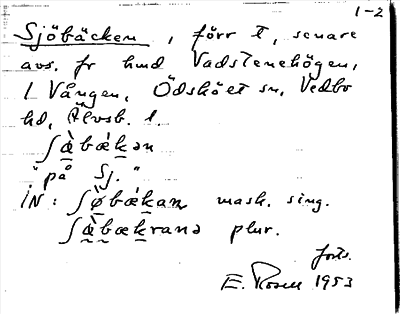 1-2
Sjöbäcken, förr t, senare
avs. fr hmd Vadstenehögen,
i Vången, Ödsköet sn, Vedbo
hd, Älvsb. l.
ʃø̀bækən
"på Sj."
IN: ʃø̀bækan mask. sing.
ʃø̀bækranə plur.
forts.
E. Rosell 1953